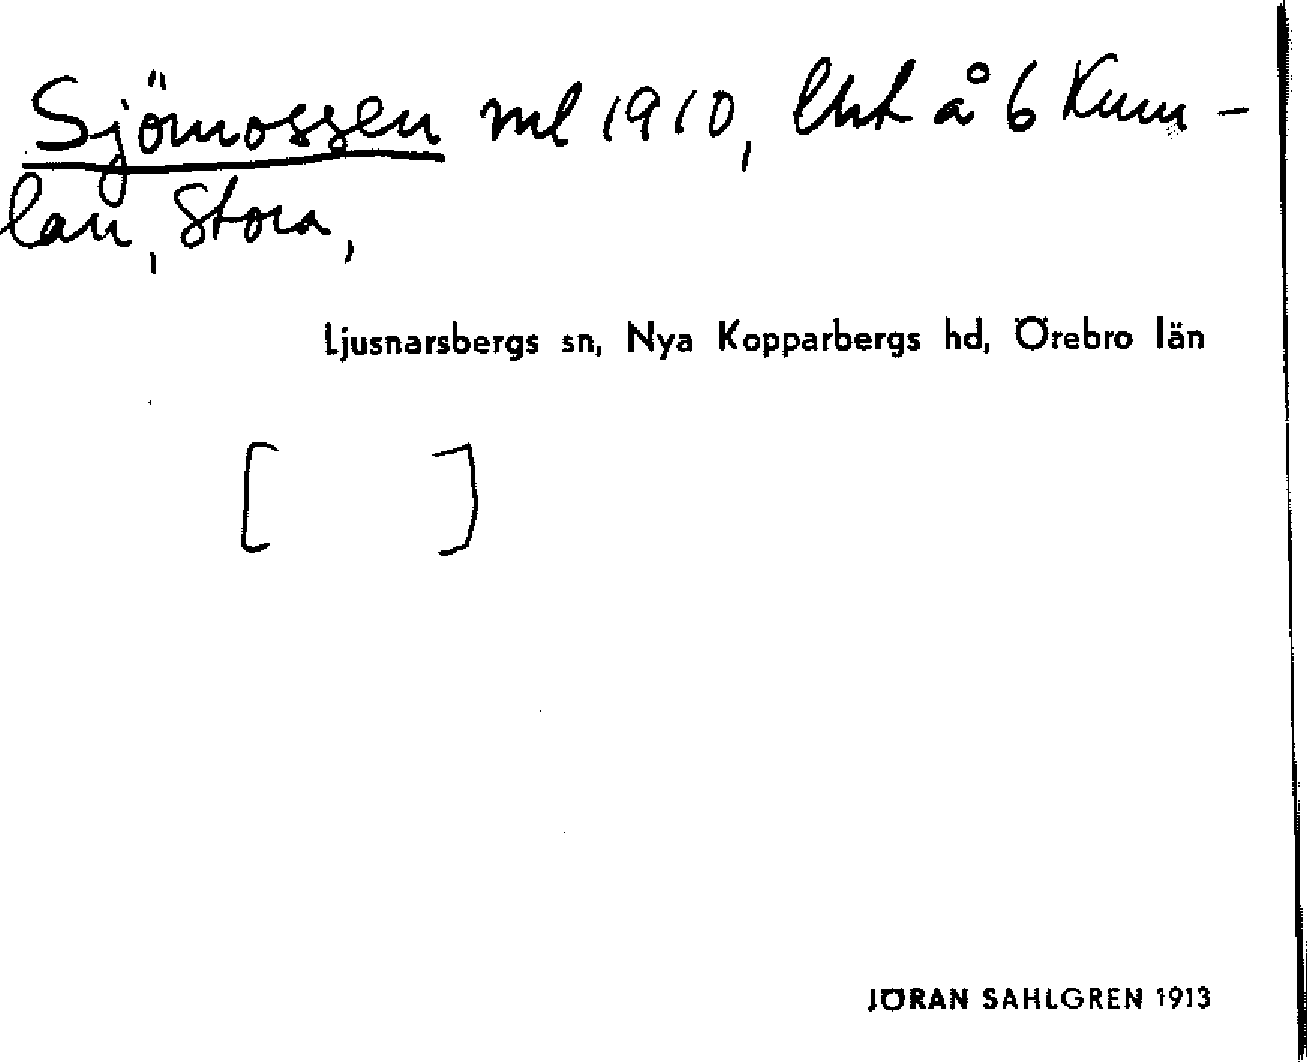 Sjömossen ml 1910, lht å 6 Kum-
lan, Stora,
Ljusnarsbergs sn, Nya Kopparbergs hd, Örebro län
[ ]
JÖRAN SAHLGREN 1913